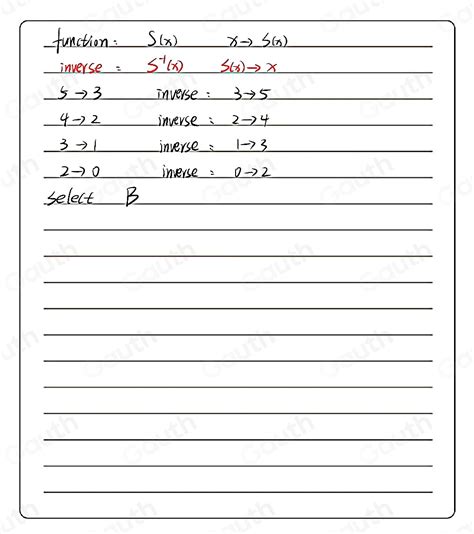 function: S(x) x→ S(x)
inverse: S⁻¹(x) S(x)→ x
5→3 inverse: 3→5
4→2 inverse: 2→4
3→1 inverse: 1→3
2→0 inverse: 0→2
select B
Gauth